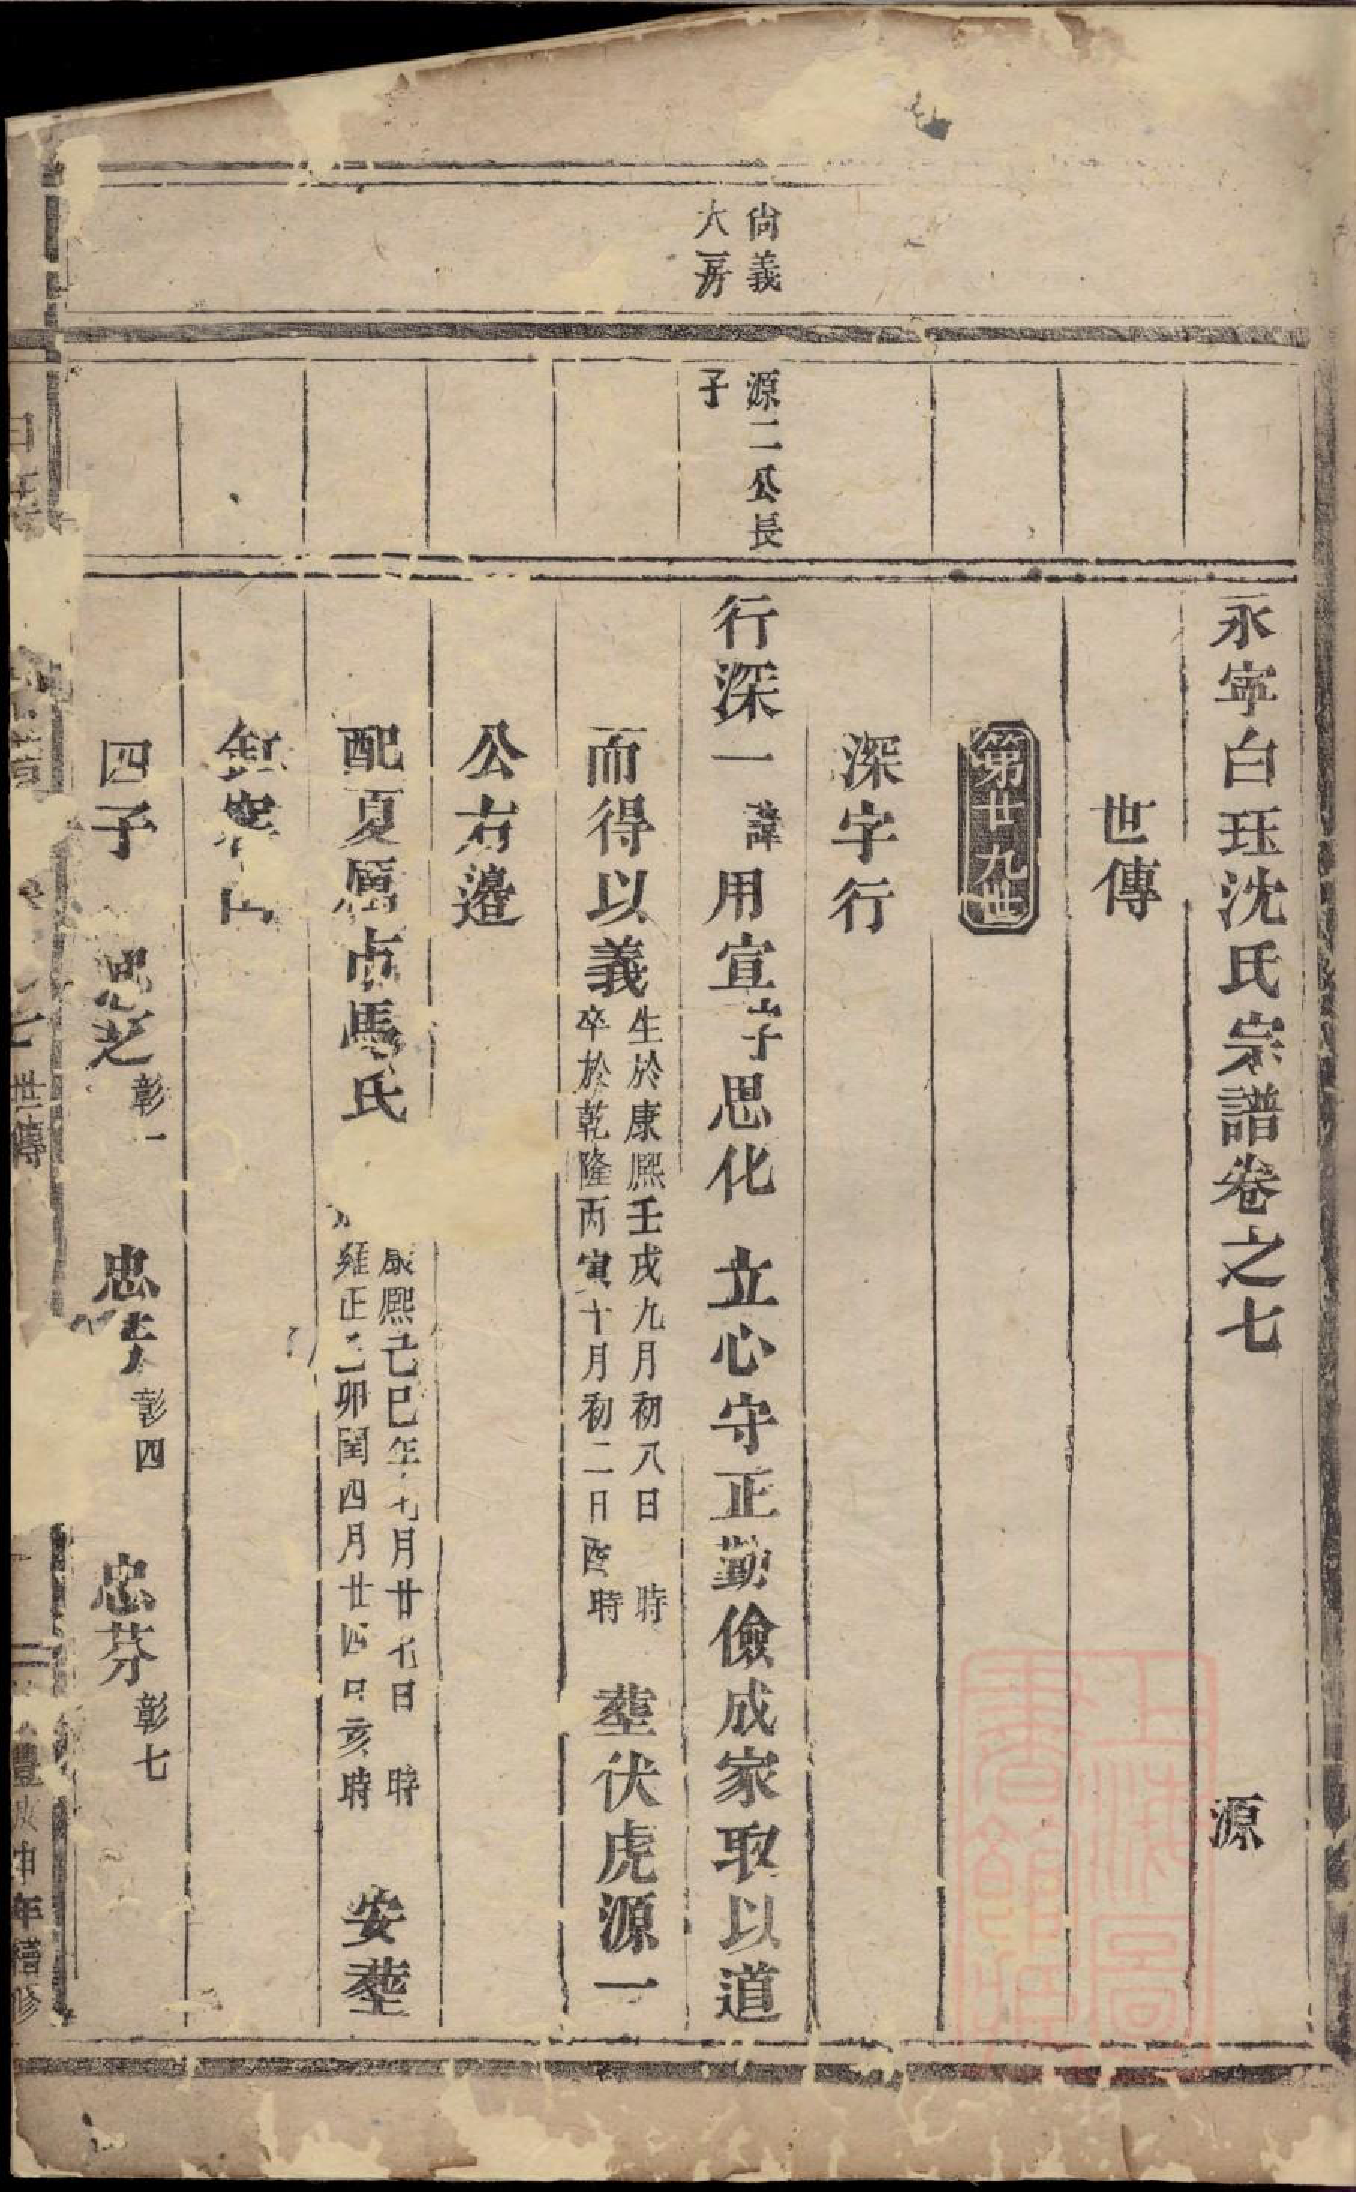 永寧白珏沈氏宗譜卷之七
源
世傳
第廿九世
深字行
尙義
大房
源二公長
子
行深一 諱用宣字思化 立心守正勤儉成家取以道
而得以義
生於康熙壬戌九月初八日 時
卒於乾隆丙寅十月初二日酉時
塟伏虎源一
公右邊
配夏厝 馬氏
康熙己巳年 月廿七日 時
雍正乙卯閏四月廿四日亥時
安塟
四子 忠芝 彰一 忠 彰四 忠芬 彰七
世傳
年續修
上海圖書館藏